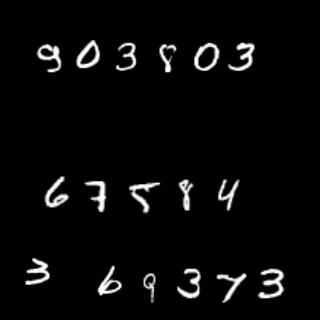 903803
67584
3 69373